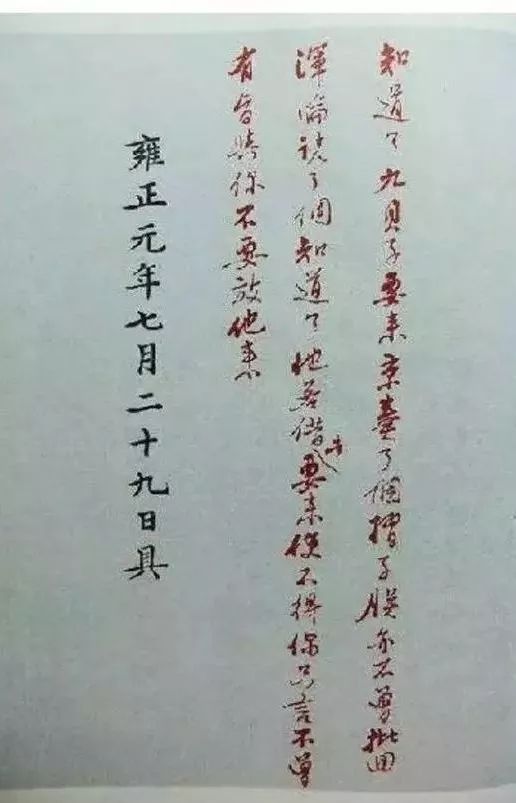 知道了九貝子要來京奏了個摺子朕亦不曾批囬
渾淪說了個知道了他若借此要來使不得你只言不曾
有旨與你不要放他來
雍正元年七月二十九日具